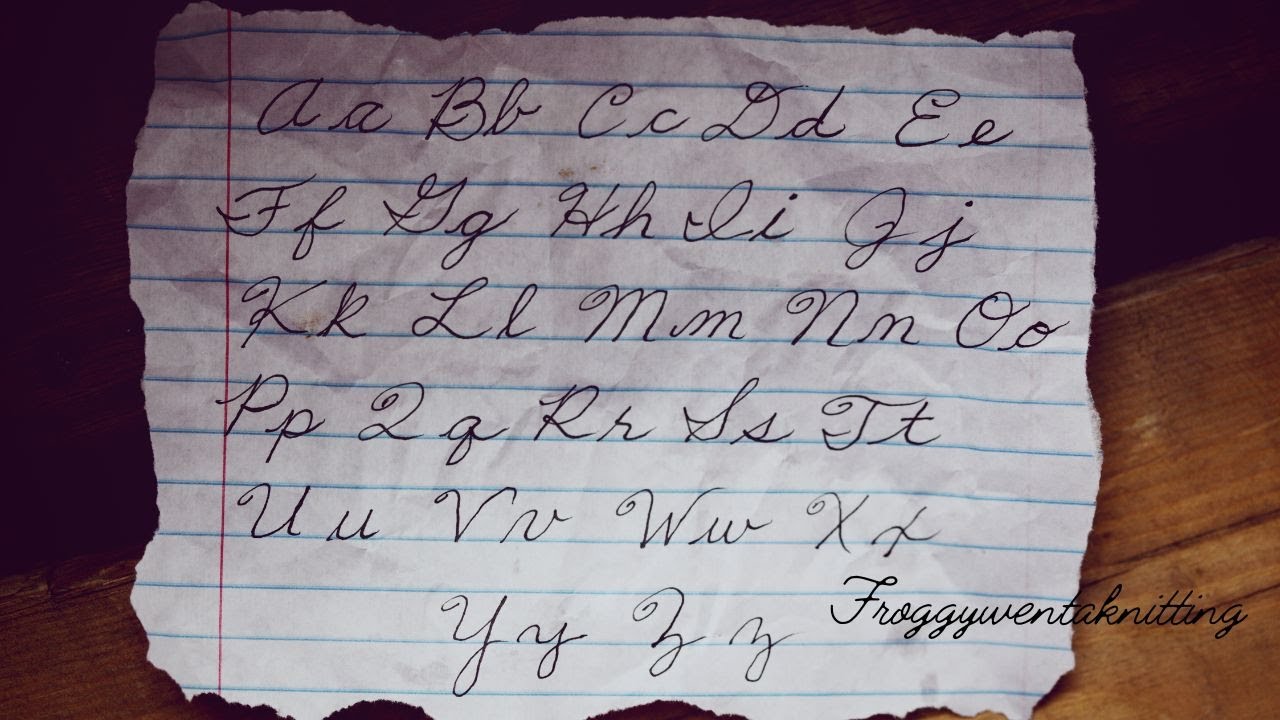 Aa Bb Cc Dd Ee
Ff Gg Hh Ii Jj
Kk Ll Mm Nn Oo
Pp Qq Rr Ss Tt
Uu Vv Ww Xx
Yy Zz
Froggywentaknitting